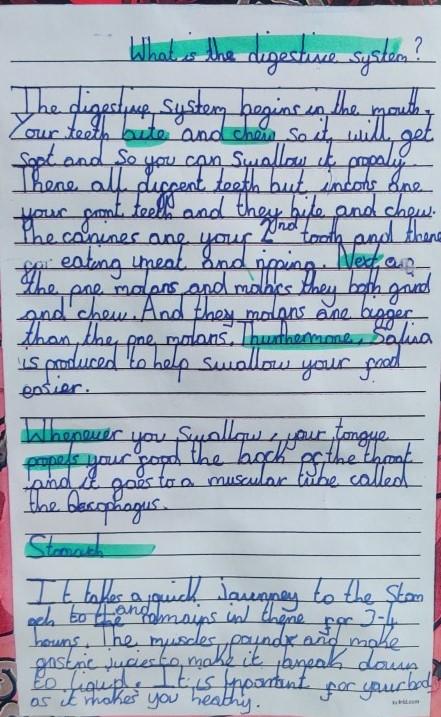 What is the digestive system?
The digestive system begins in the mouth.
Your teeth bite and chew so it will get
soft and so you can swallow it propaly.
There all diffent teeth but incors are
your front teeth and they bite and chew.
The canines are your 2nd tooth and there
for eating meat and ripping. Next are
the pre molars and molars they both grind
and chew. And they molars are bigger
than the pre molars. Thurthermore, Saliva
is produced to help swallow your food
easier.
Whenever you swallow, your tongue
popels your food the back of the throat
and it goes to a muscular tube called
the Oesophagus.
Stomach
It takes a quick journney to the Stom
ach to the and remains in there for 3-4
hours. The muscles pound and make
gastric juices to make it break down
to liquid. It is important for your body
as it makes you healthy.